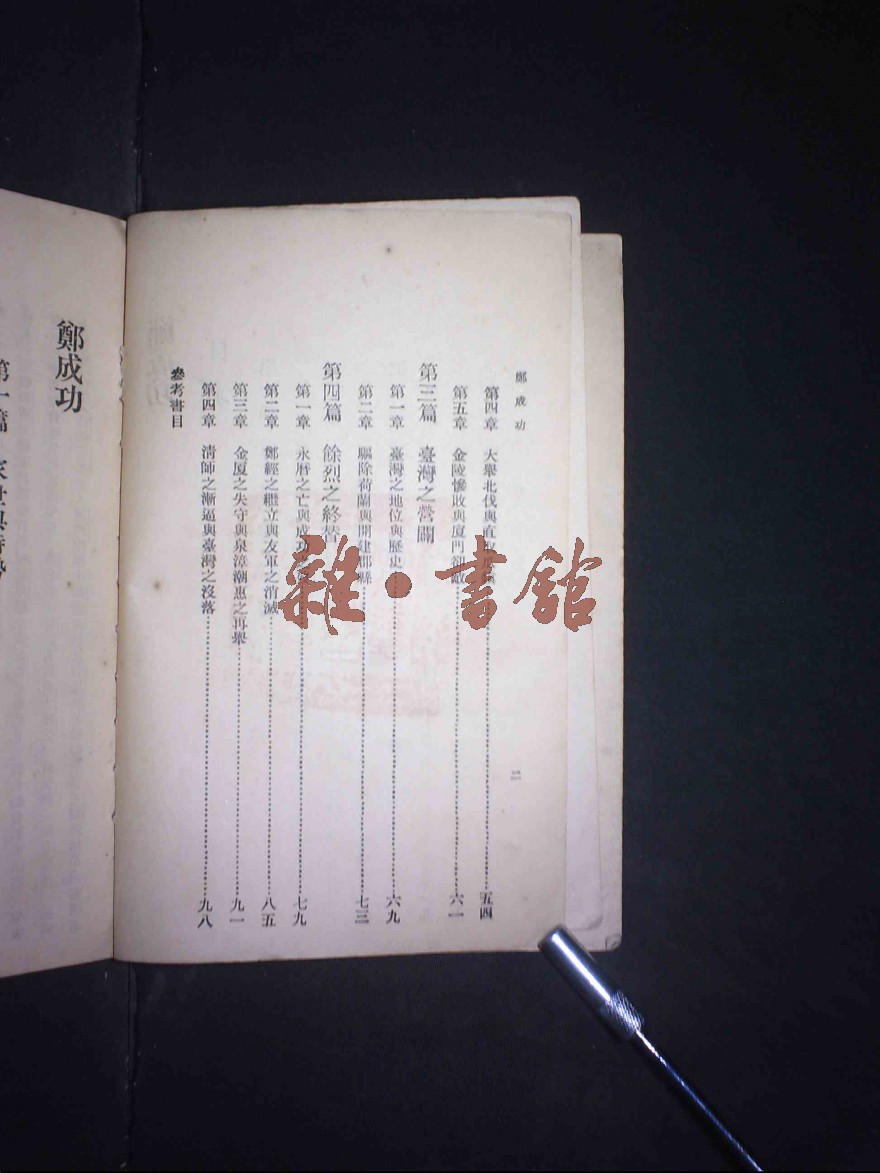 鄭成功
二
第四章 大舉北伐與直
五四
第五章 金陵慘敗與厦門
六一
第三篇 臺灣之營闢
第一章 臺灣之地位與歷史
六九
第二章 驅除荷蘭與開建郡縣
七三
第四篇 餘烈之終替
第一章 永曆之亡與成功
七九
第二章 鄭經之繼立與友軍之消滅
八五
第三章 金厦之失守與泉漳潮惠之再舉
九一
第四章 清師之漸逼與臺灣之沒落
九八
參考書目
鄭成功
第一篇
雜·書館